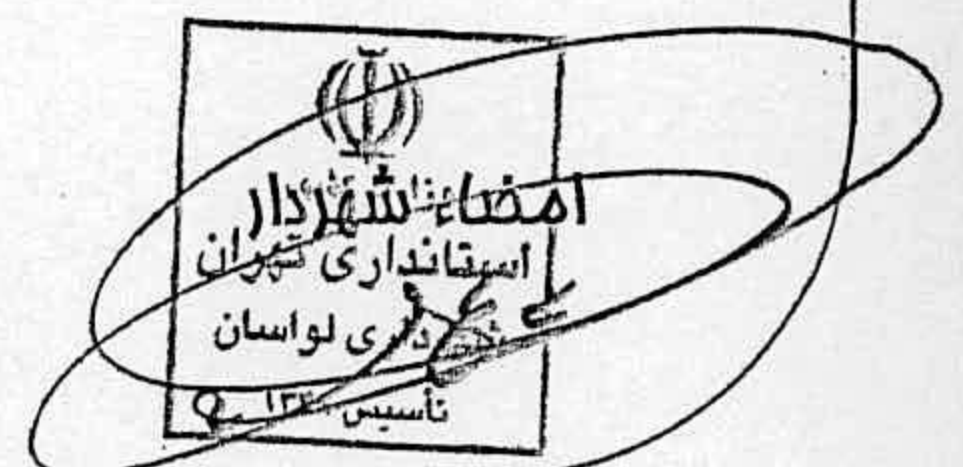 امضاء شهردار
استانداری تهران
شهرداری لواسان
تأسیس